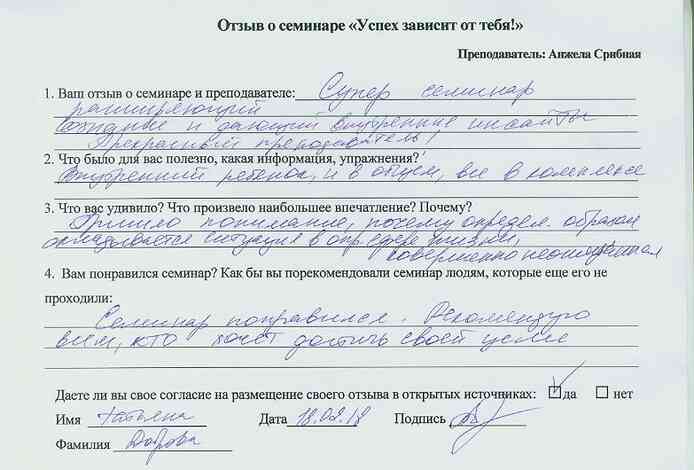 Отзыв о семинаре «Успех зависит от тебя!»
Преподаватель: Анжела Срибная
1. Ваш отзыв о семинаре и преподавателе: Супер семинар
расширяющий
сознание и дающий внутренние инсайты
Прекрасный преподаватель!
2. Что было для вас полезно, какая информация, упражнения?
Внутренний ребенок, и в общем, все в комплексе
3. Что вас удивило? Что произвело наибольшее впечатление? Почему?
Пришло понимание, почему определ. образом
складывается ситуация в опр. сфере жизни,
совершенно неожиданная
4. Вам понравился семинар? Как бы вы порекомендовали семинар людям, которые еще его не
проходили:
Семинар понравился. Рекомендую
всем, кто хочет достичь своей цели
Даете ли вы свое согласие на размещение своего отзыва в открытых источниках: да нет
Имя Татьяна Дата 18.02.18 Подпись
Фамилия